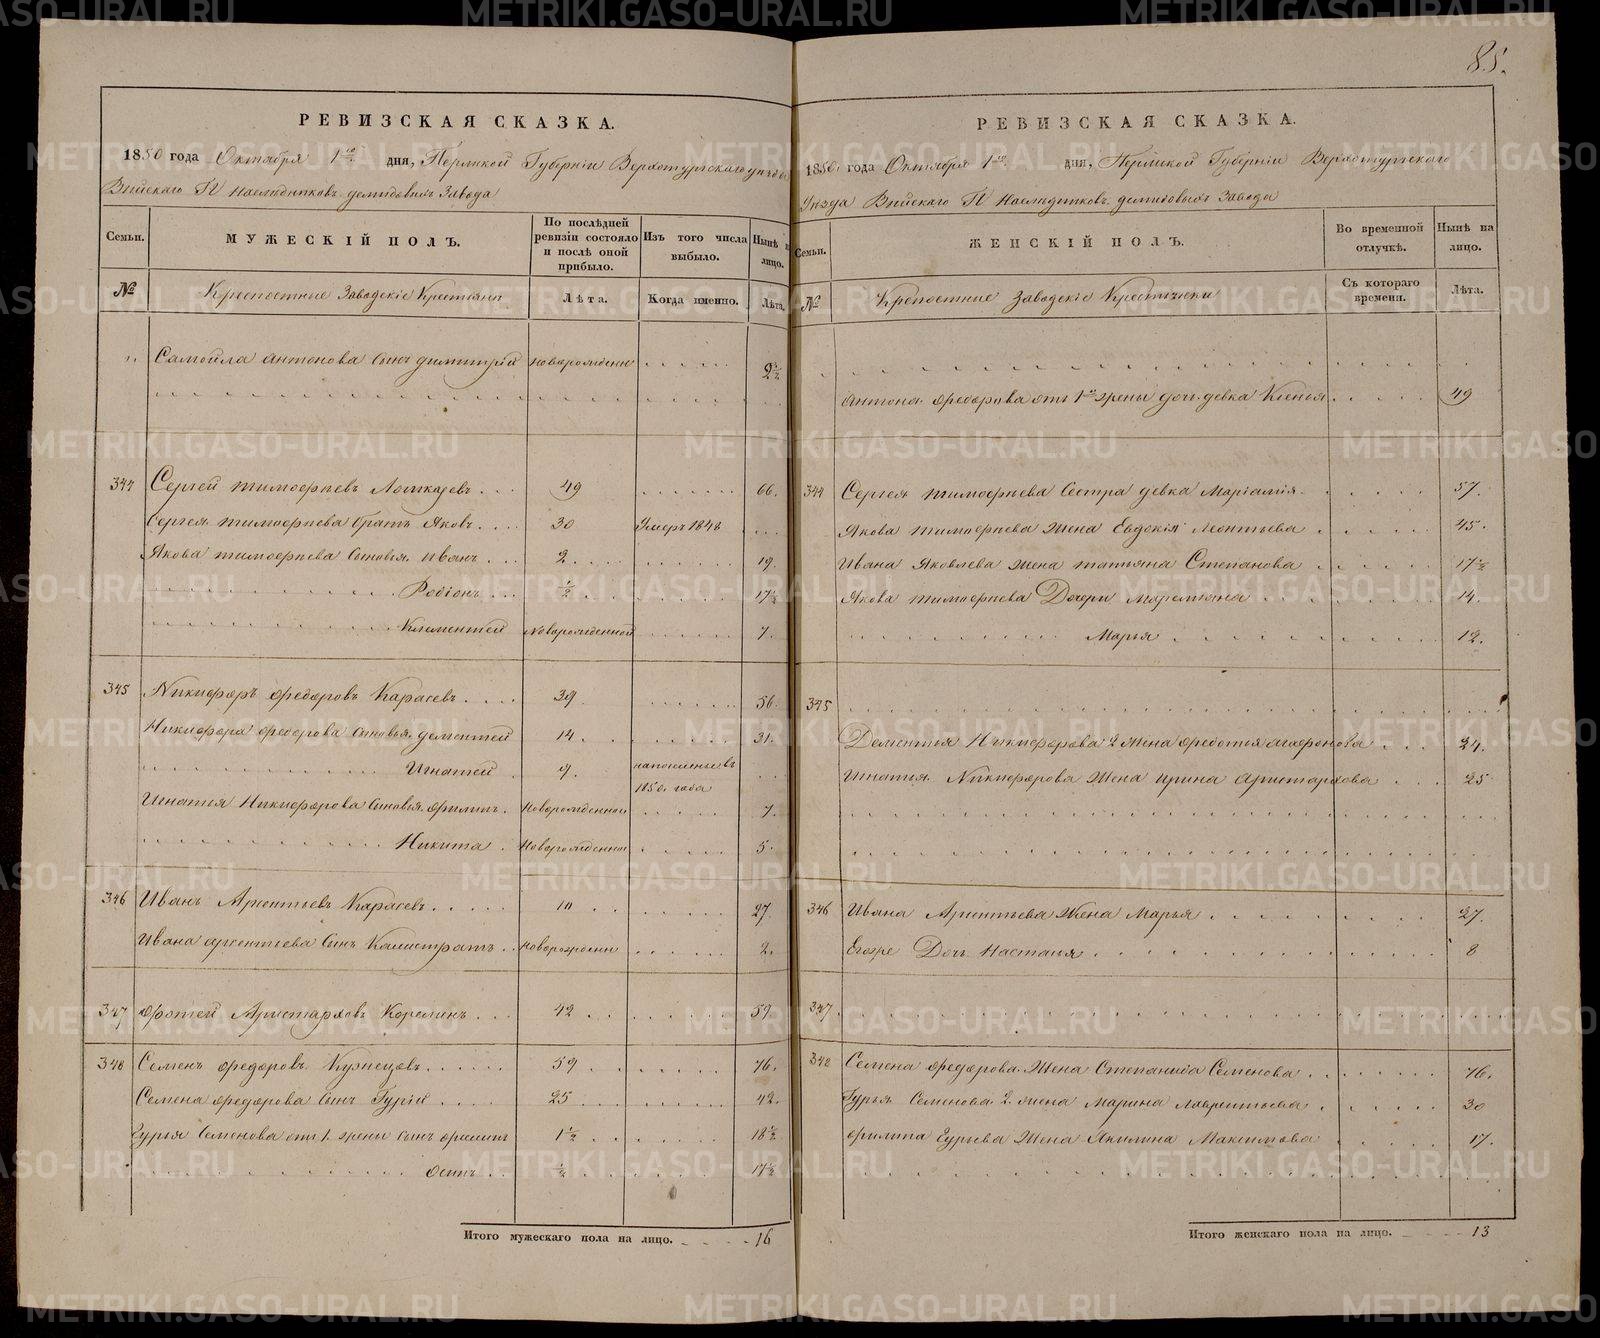 85.
РЕВИЗСКАЯ СКАЗКА.
1850 года Октября 1го дня, Пермской Губерніи Верхотурскаго уезда
Выйскаго Г. Наследниковъ демидовыхъ Завода
Семьи.
МУЖЕСКІЙ ПОЛЪ.
По послѣдней ревизіи состояло и послѣ оной прибыло.
Изъ того числа выбыло.
Нынѣ на лицо.
№
Крепостные Заводскіе Крестьяне
Лѣта.
Когда именно.
Лѣта.
" Самойла антонова Сынъ димитрій новорожденъ 2 1/2
344 Сергей тимофеевъ Лошкаревъ 49 66.
Сергея тимофеева братъ Яковъ 30 Умеръ 1848
Якова тимофеева Сыновья иванъ 2 19.
Родіонъ 1/2 17 1/2
Климентей Новорожденной 7.
345 Никифоръ федоровъ Карасевъ 39 56.
Никифора федорова Сыновья дементей 14 31.
Игнатей 9. на поселенье въ 1850. года
Игнатія Никифорова Сыновья филипъ Новорожденной 7.
Никита Новорожденной 5.
346 Иванъ Арсентьевъ Карасевъ 10 27.
Ивана арсентіева Сынъ Калистратъ 2.
347 фотей Аристарховъ Корелинъ 42 59.
348 Семенъ федоровъ Кузнецовъ 59 76.
Семена федорова Сынъ Гурій 25 42.
Гурья Семенова отъ 1. жены сынъ филипъ 1 1/2 18 1/2
осипъ 1/2 17 1/2
Итого мужескаго пола на лицо. 16
РЕВИЗСКАЯ СКАЗКА.
1850. года Октября 1го дня, Пермской Губерніи Верхотурскаго
Уезда Выйскаго Г. Наследниковъ демидовыхъ Завода
Семьи.
ЖЕНСКІЙ ПОЛЪ.
Во временной отлучкѣ.
Нынѣ на лицо.
№
Крепостные Заводскіе Крестьянки
Съ котораго времени.
Лѣта.
Антона федорова отъ 1й жены доч. девка Ксенья 49
344 Сергея тимофеева Сестра девка Маріамія 57.
Якова тимофеева Жена Евдокія Леонтьева 45.
Ивана Яковлева жена татьяна Степанова 17 1/2
Якова тимофеева Дочери Маремьяна 14.
Марья 12.
345
Дементья Никифорова 2 жена федотья агафонова 24.
Игнатія Никифорова Жена ирина Аристархова 25
346 Ивана Арсентьева Жена Марья 27.
Егоже Дочь Настасья 8
347
348 Семена федорова Жена Степанида Семенова 76.
Гурья Семенова 2. жена Марина лаврентьева 30
филипа Гурьева Жена Акилина Максимова 17.
Итого женскаго пола на лицо. 13
METRIKI.GASO-URAL.RU